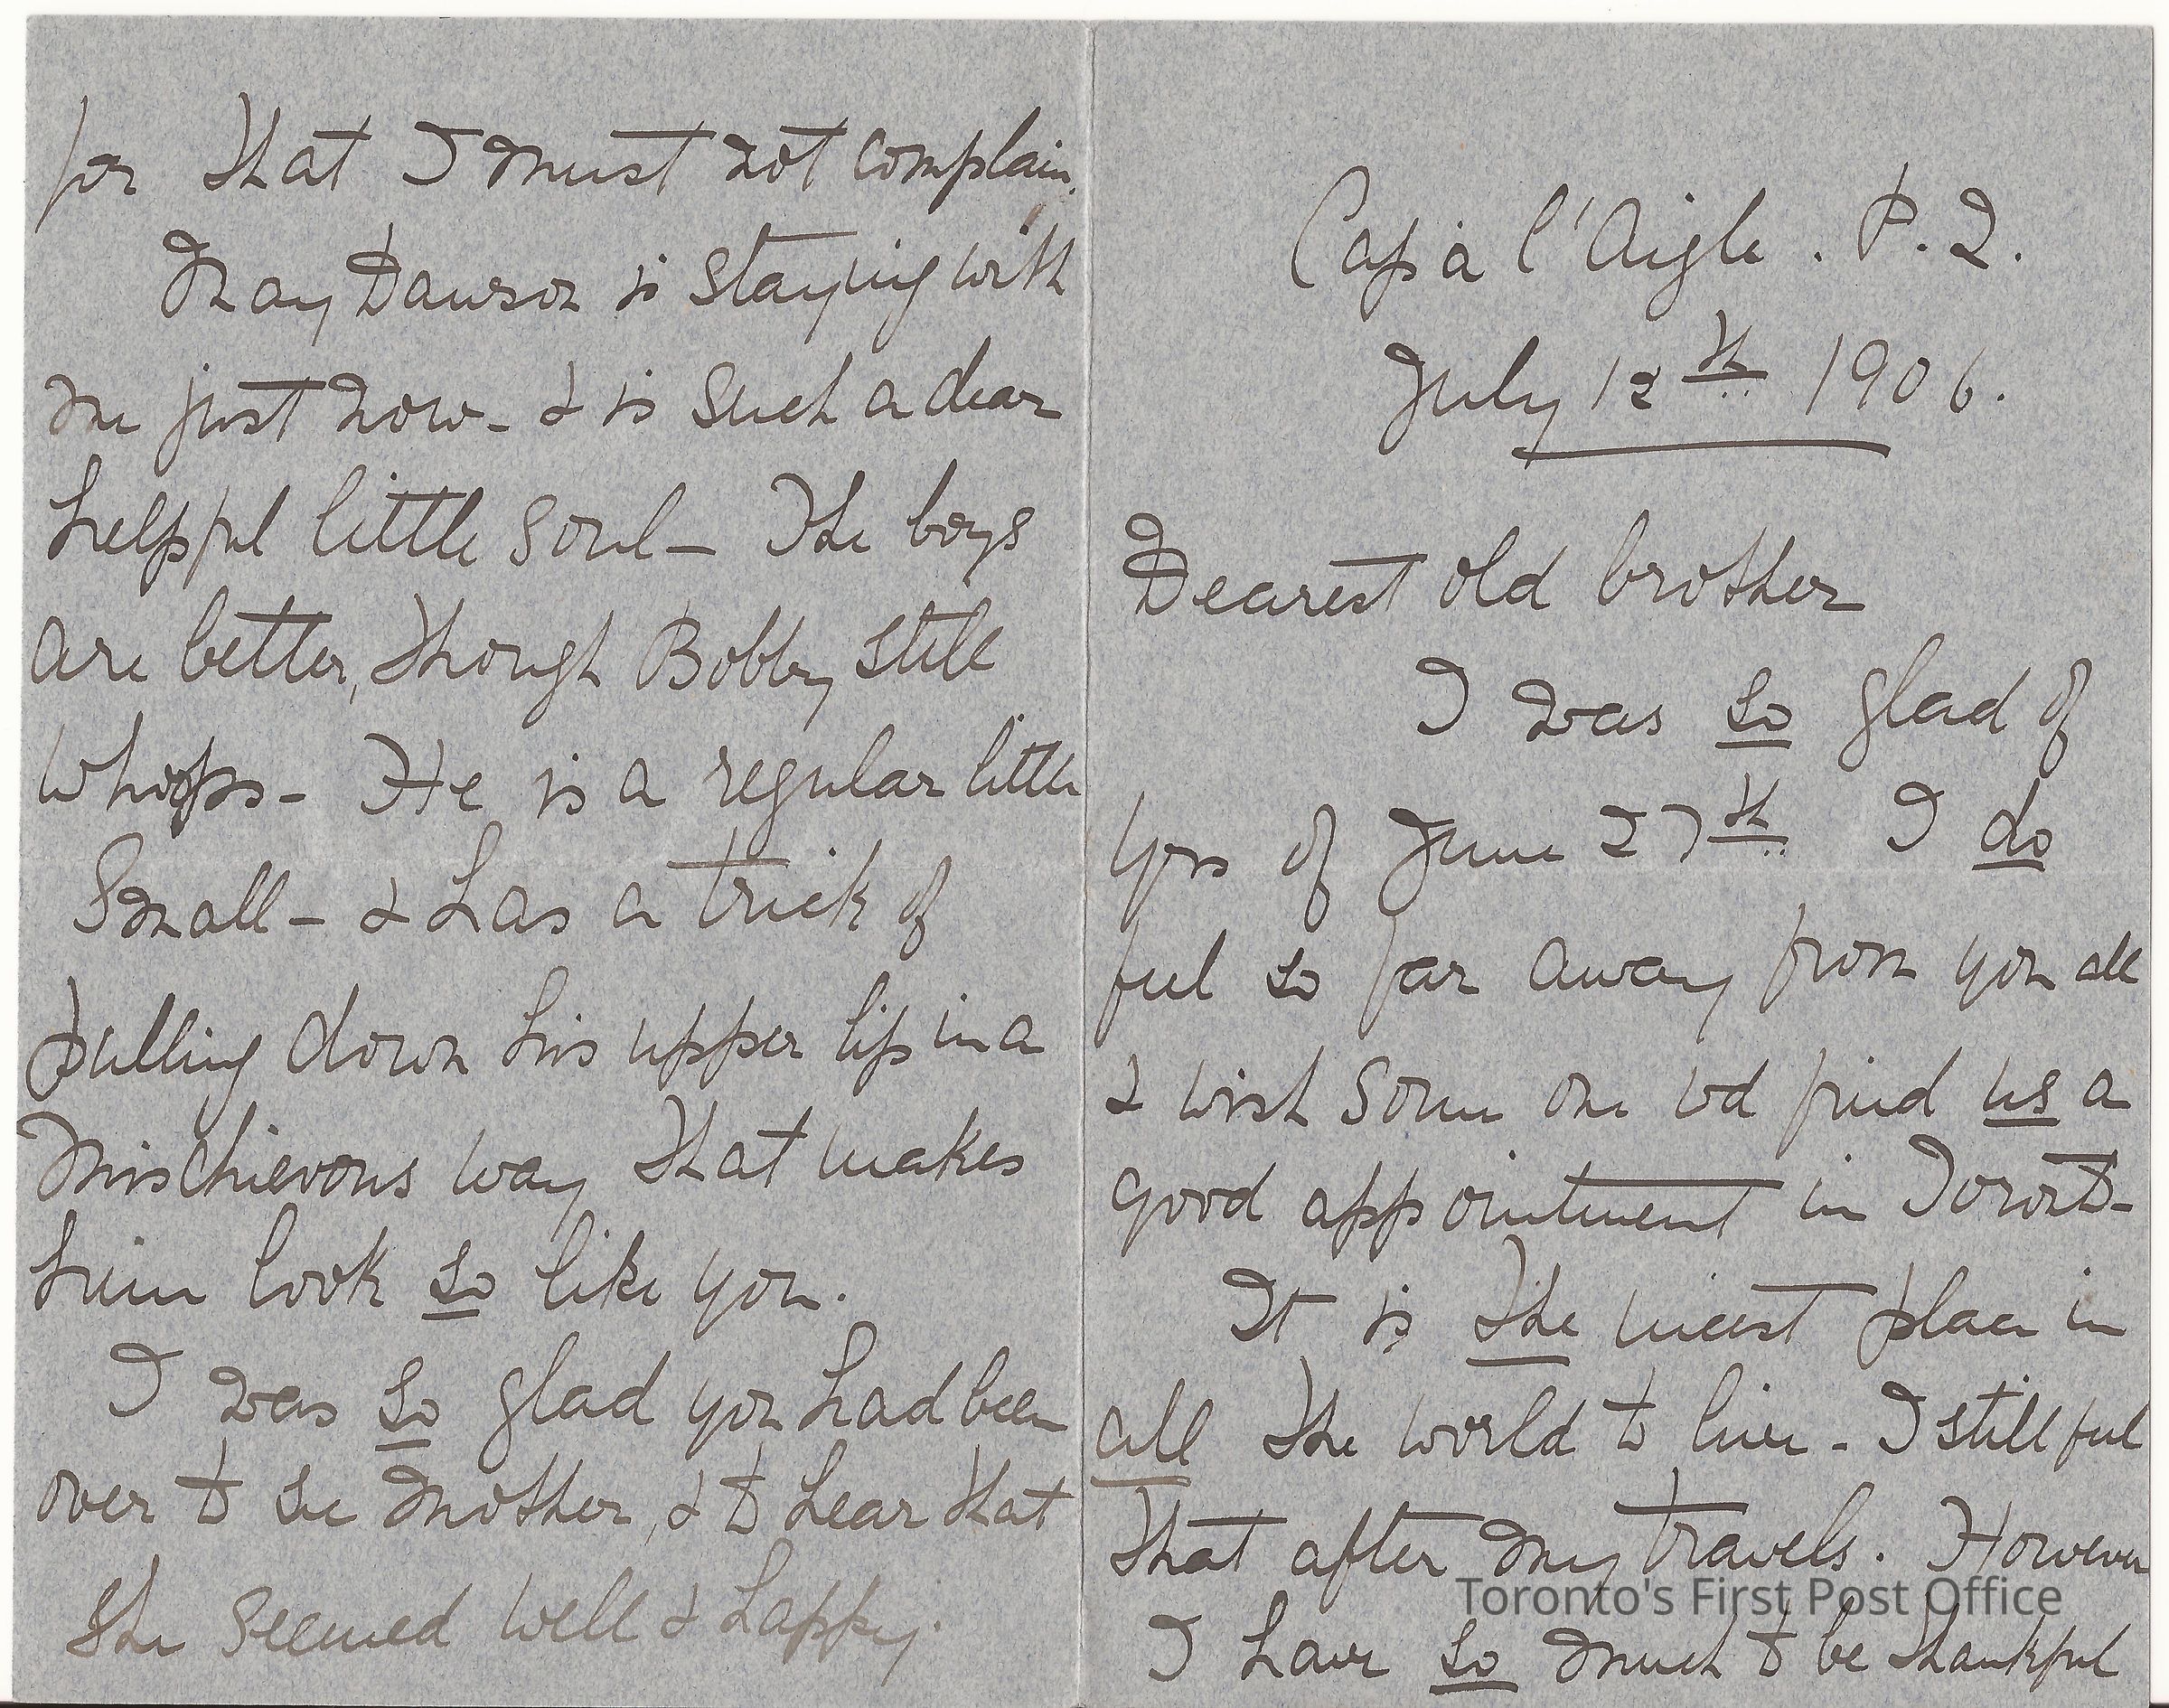 Cap à l'Aigle. P. Q.
July 12th 1906.
Dearest old brother
I was so glad of
yrs of June 27th I do
feel so far away from you all
& wish some one wd find us a
good appointment in Toronto-
It is the nicest place in
all the world to live - I still feel
that after my travels. However
I have so much to be thankful
for that I must not complain.
May Dawson is staying with
me just now - & is such a dear
helpful little soul - The boys
are better, though Bobby still
whoops - He is a regular little
Small - & has a trick of
pulling down his upper lip in a
mischievous way that makes
him look so like you.
I was so glad you had been
over to see Mother, & to hear that
she seemed well & happy.
Toronto's First Post Office